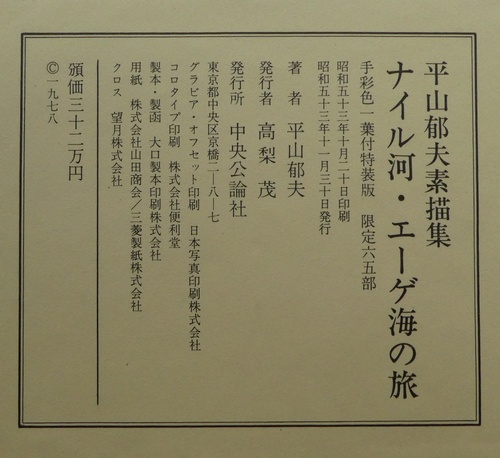 平山郁夫素描集
ナイル河・エーゲ海の旅
手彩色一葉付特装版　限定六五部
昭和五十三年十月二十日印刷
昭和五十三年十一月三十日発行
著　者　平山郁夫
発行者　高梨　茂
発行所　中央公論社
東京都中央区京橋二―八―七
グラビア・オフセット印刷　日本写真印刷株式会社
コロタイプ印刷　株式会社便利堂
製本・製函　大口製本印刷株式会社
用紙　株式会社山田商会／三菱製紙株式会社
クロス　望月株式会社
頒価三十二万円
©一九七八